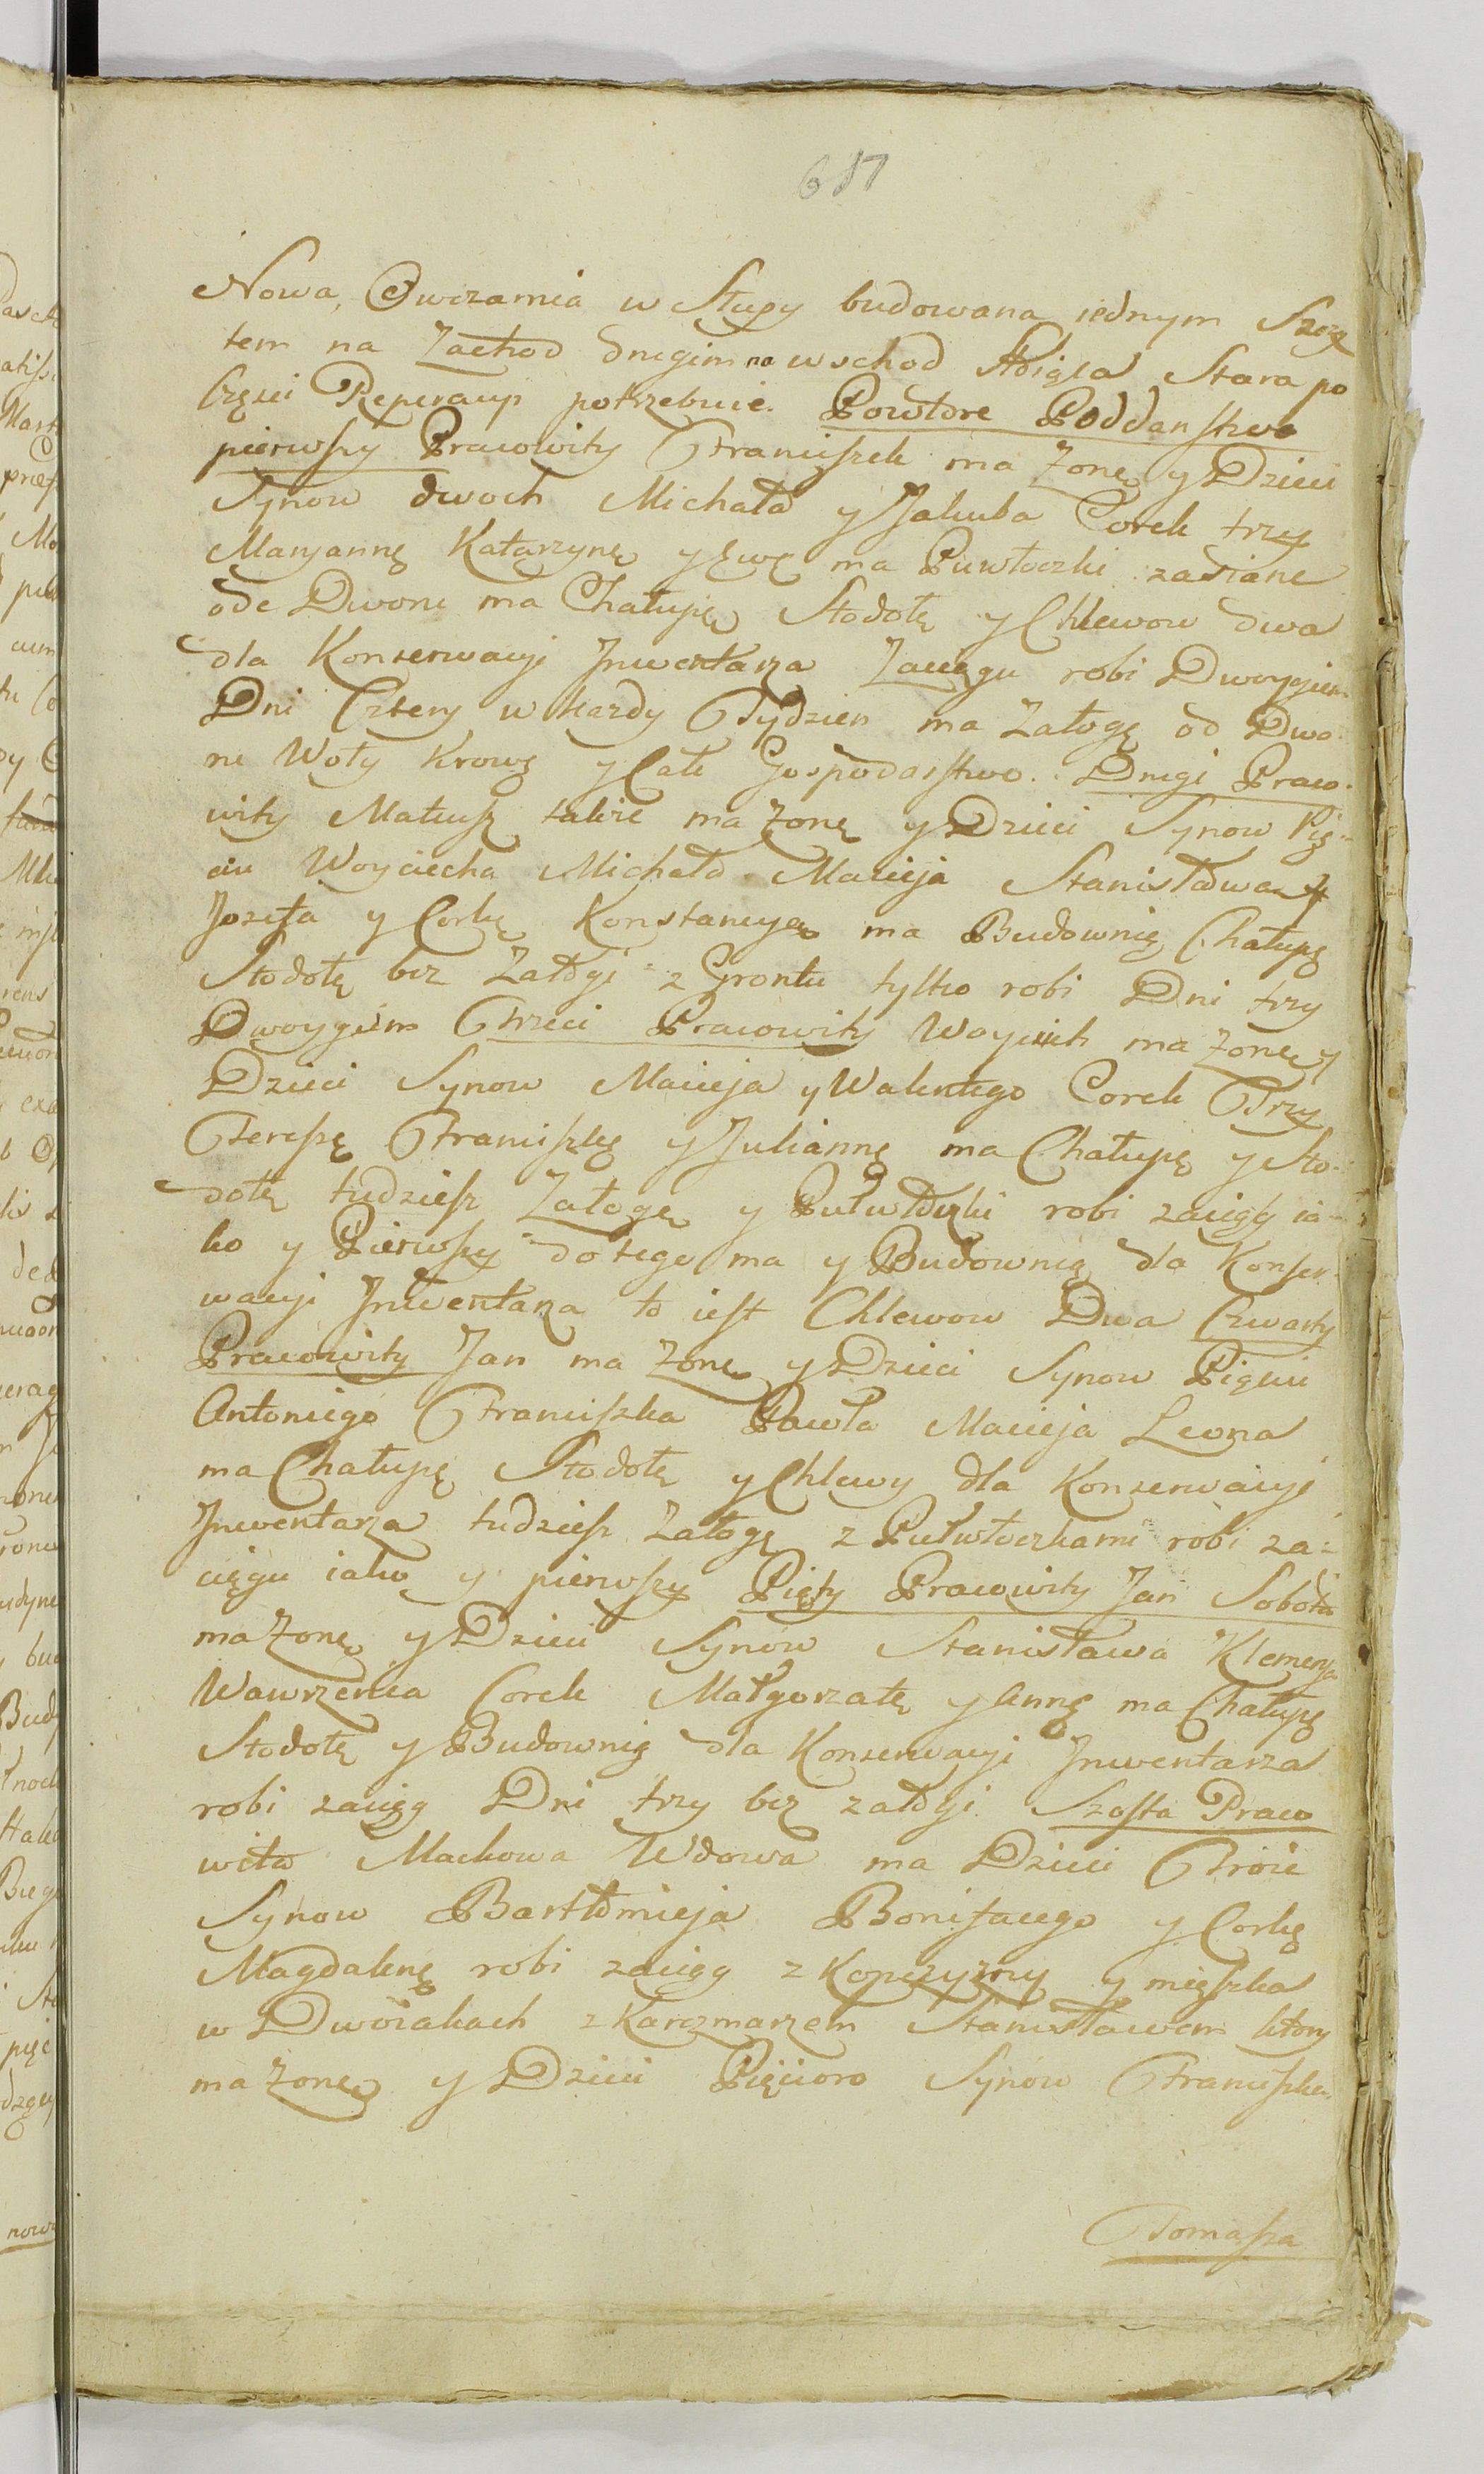 687
Nowa, Owczarnia w Słupy budowana iednym Szczy
tem na Zachod drugim na wschod Staięła Stara po
Części Reperacyi potrzebuie. Powtore Poddanstwo
pierwszy Pracowity Franciszek ma Zonę y Dzieci
Synow dwoch Michała y Jakuba Corek trzy
Maryannę Katarzynę y Ewę ma Puwłoczki zasiane
ode Dworu ma Chałupę Stodołę y Chlewow dwa
dla Konserwacyi Jnwentarza Zaciągu robi Dwoygiem
Dni Cztery w każdy Tydzien ma Załogę od Dwo-
ru Woły Krowę y Całe Gospodarstwo. Drugi Praco-
wity Mateusz także ma Zonę y Dzieci Synow Pię-
ciu Woyciecha Michała Macieja Stanisława y
Jozefa y Corkę Konstancyę ma Budownią Chałupę
Stodołę bez Załogi z Grontu tylko robi Dni trzy
Dwoygiem Trzeci Pracowity Woyciech ma Zonę y
Dzieci Synow Macieja y Walentego Corek Trzy
Teressę Franciszkę y Juliannę ma Chałupę y Sto-
dołę tudziesz Załogę y Pułwłoczki robi zaciąg ia-
ko y Pierwszy do tego ma y Budownią dla Konser-
wacyi Jnwentarza to iest Chlewow Dwa Czwarty
Pracowity Jan ma Zonę y Dzieci Synow Pięciu
Antoniego Franciszka Pawła Macieja Leona
ma Chałupę Stodołę y Chlewy dla Konserwacyi
Jnwentarza tudziesz Załogę z Pułwłoczkami robi za-
ciągu iako y pierwszy Piąty Pracowity Jan Sobota
ma Zonę y Dzieci Synow Stanisława Klemensa
Wawrzenca Corek Małgorzatę y Annę ma Chałupę
Stodołę y Budownią dla Konserwacyi Jnwentarza
robi zaciąg Dni trzy bez załogi. Szosta Praco
wita Mackowa Wdowa ma Dzieci Troie
Synow Bartłomieja Bonifacego y Corkę
Magdalenę robi zaciąg z Kopczyzny y mięszka
w Dworakach z Karczmarzem Stanisławem ktory
ma Zonę y Dzieci Pięcioro Synow Franciszka
Tomasza